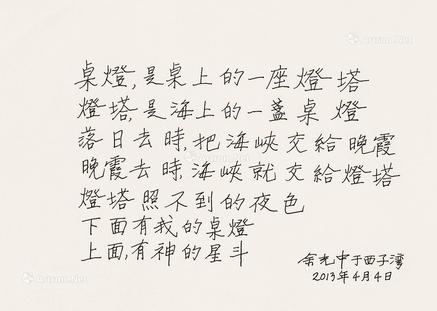 桌燈,是桌上的一座燈塔
燈塔,是海上的一盞桌燈
落日去時,把海峽交給晚霞
晚霞去時,海峽就交給燈塔
燈塔照不到的夜色
下面有我的桌燈
上面,有神的星斗
余光中于西子湾
2013年4月4日